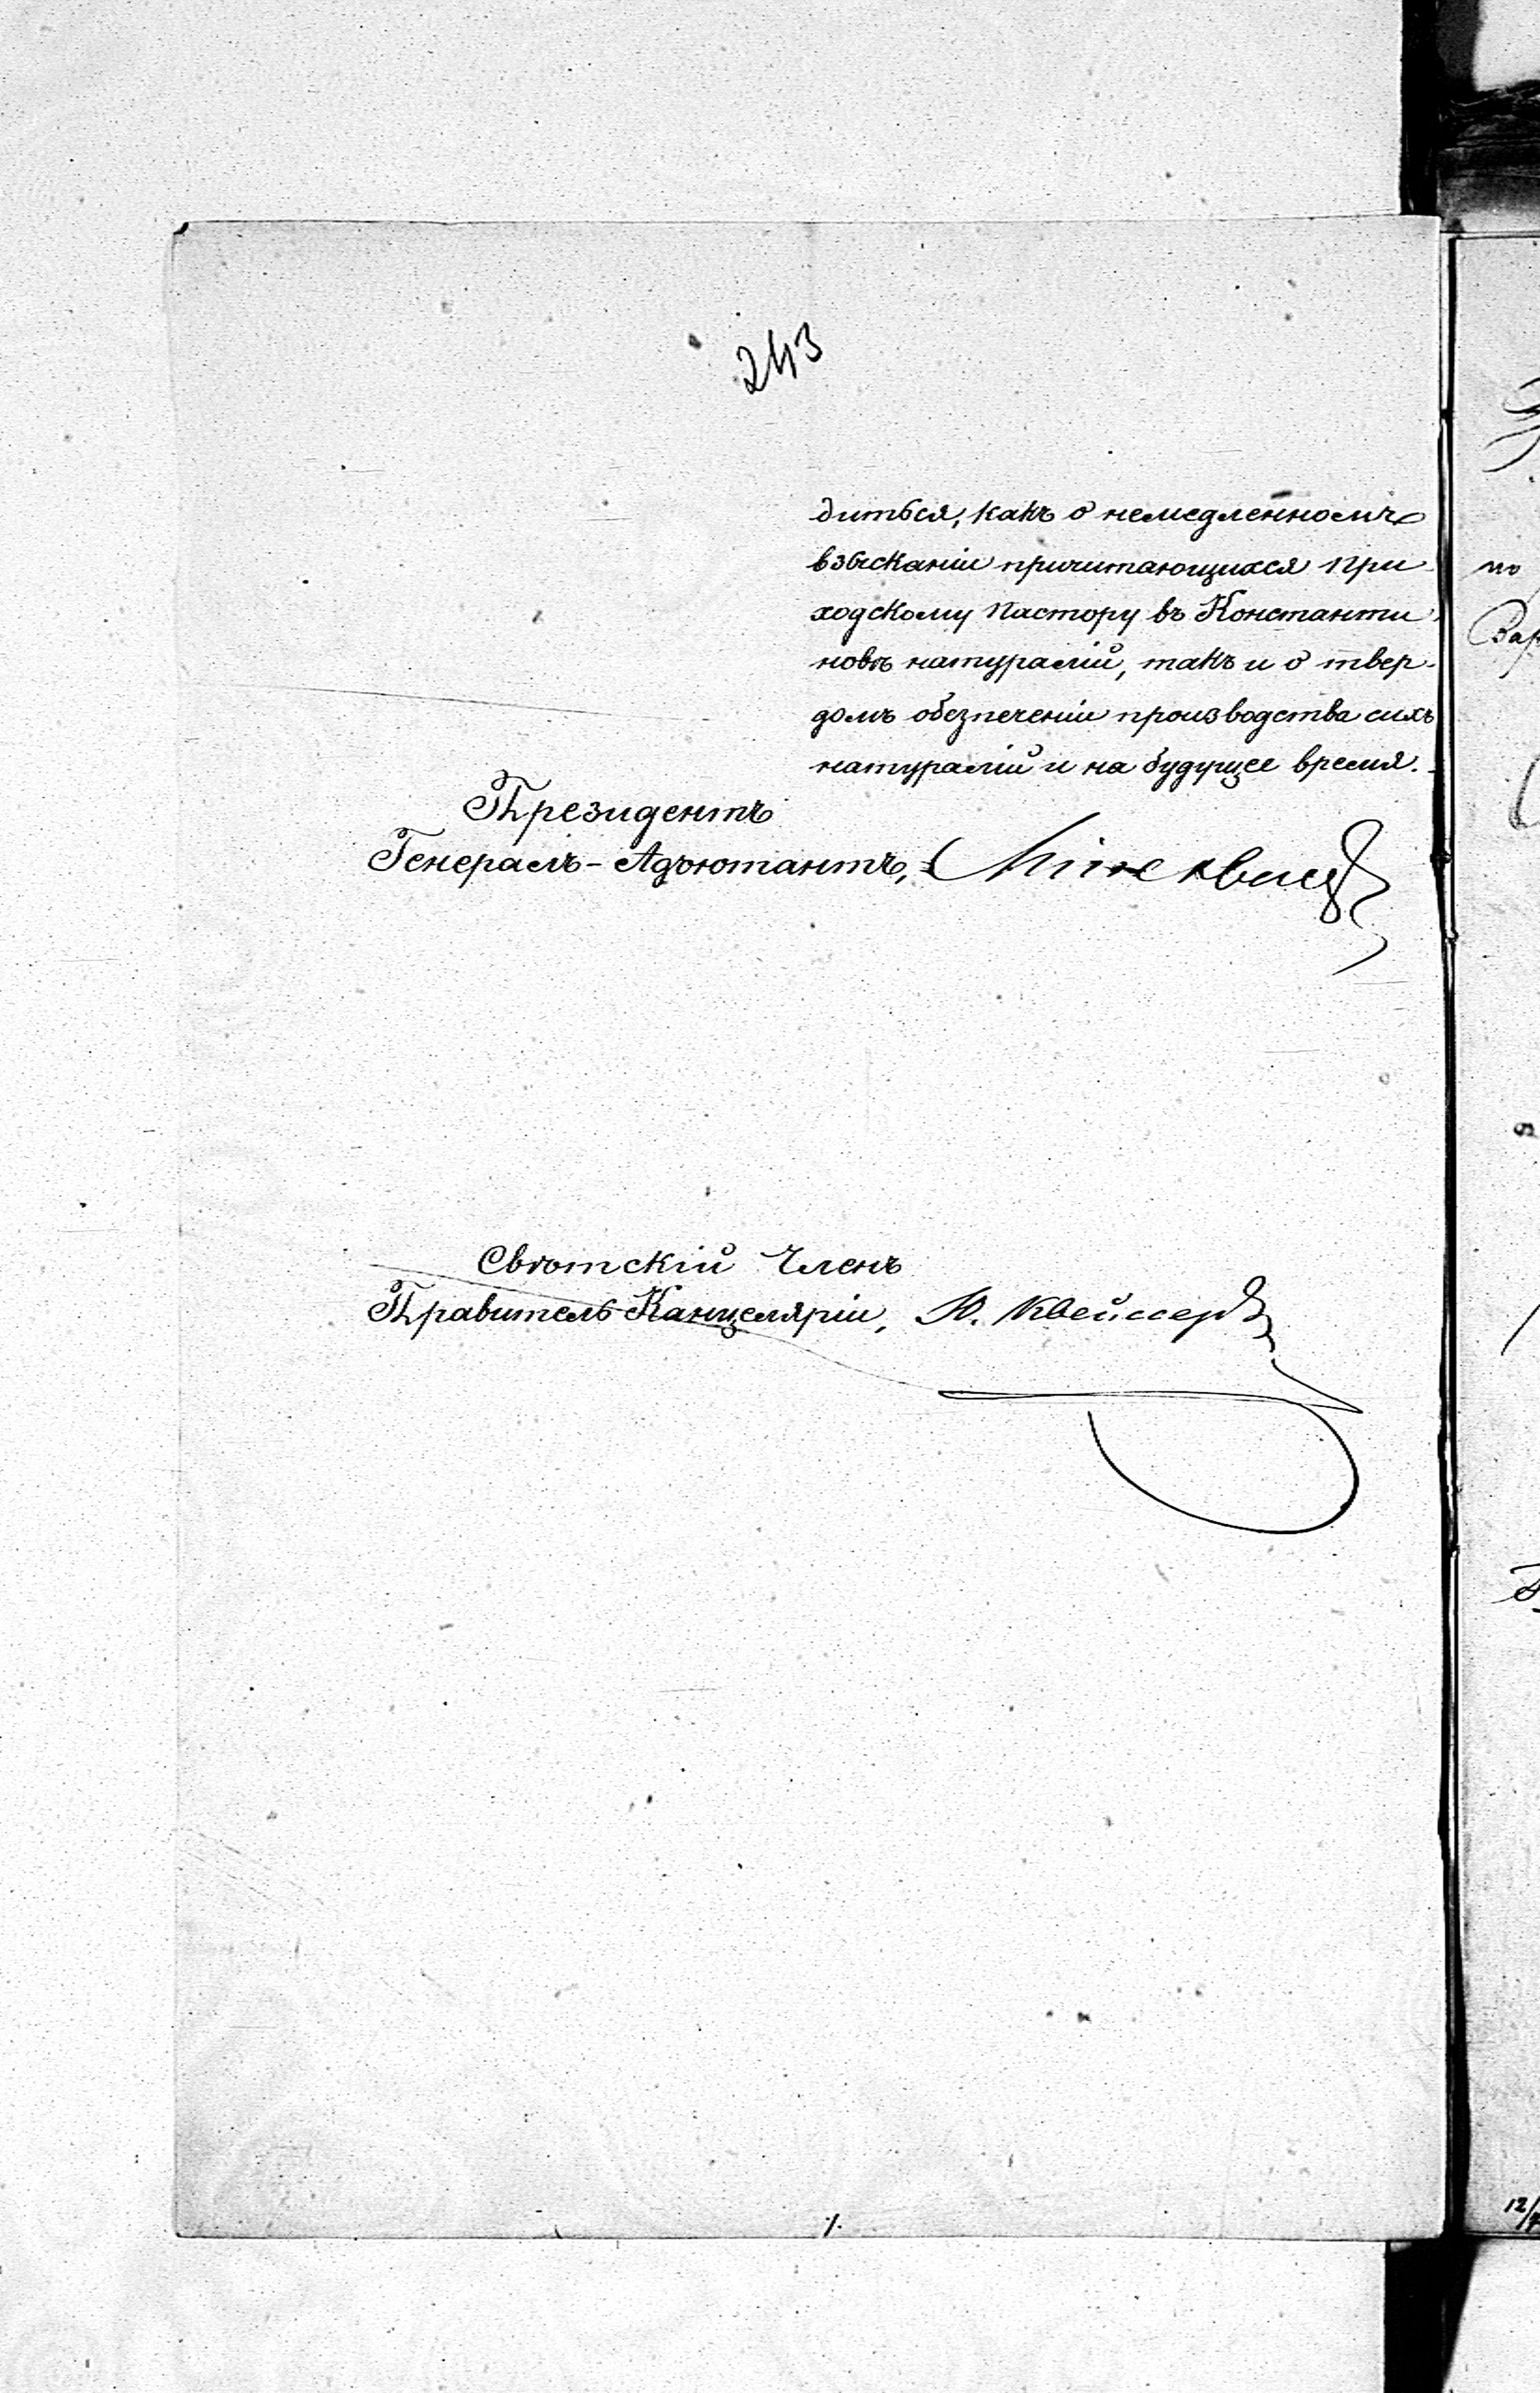 243
диться, какъ о немедленномъ
взысканіи причитающихся При-
ходскому Пастору въ Константи-
новѣ натуралій, такъ и о твер-
домъ обезпеченіи производства сихъ
натуралій и на будущее время.
Президентъ
Генералъ-Адъютантъ,
Свѣтскій Членъ
Правитель Канцеляріи, Ю.